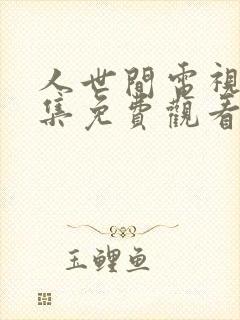 人世間電視
集免費觀看
玉鯉魚